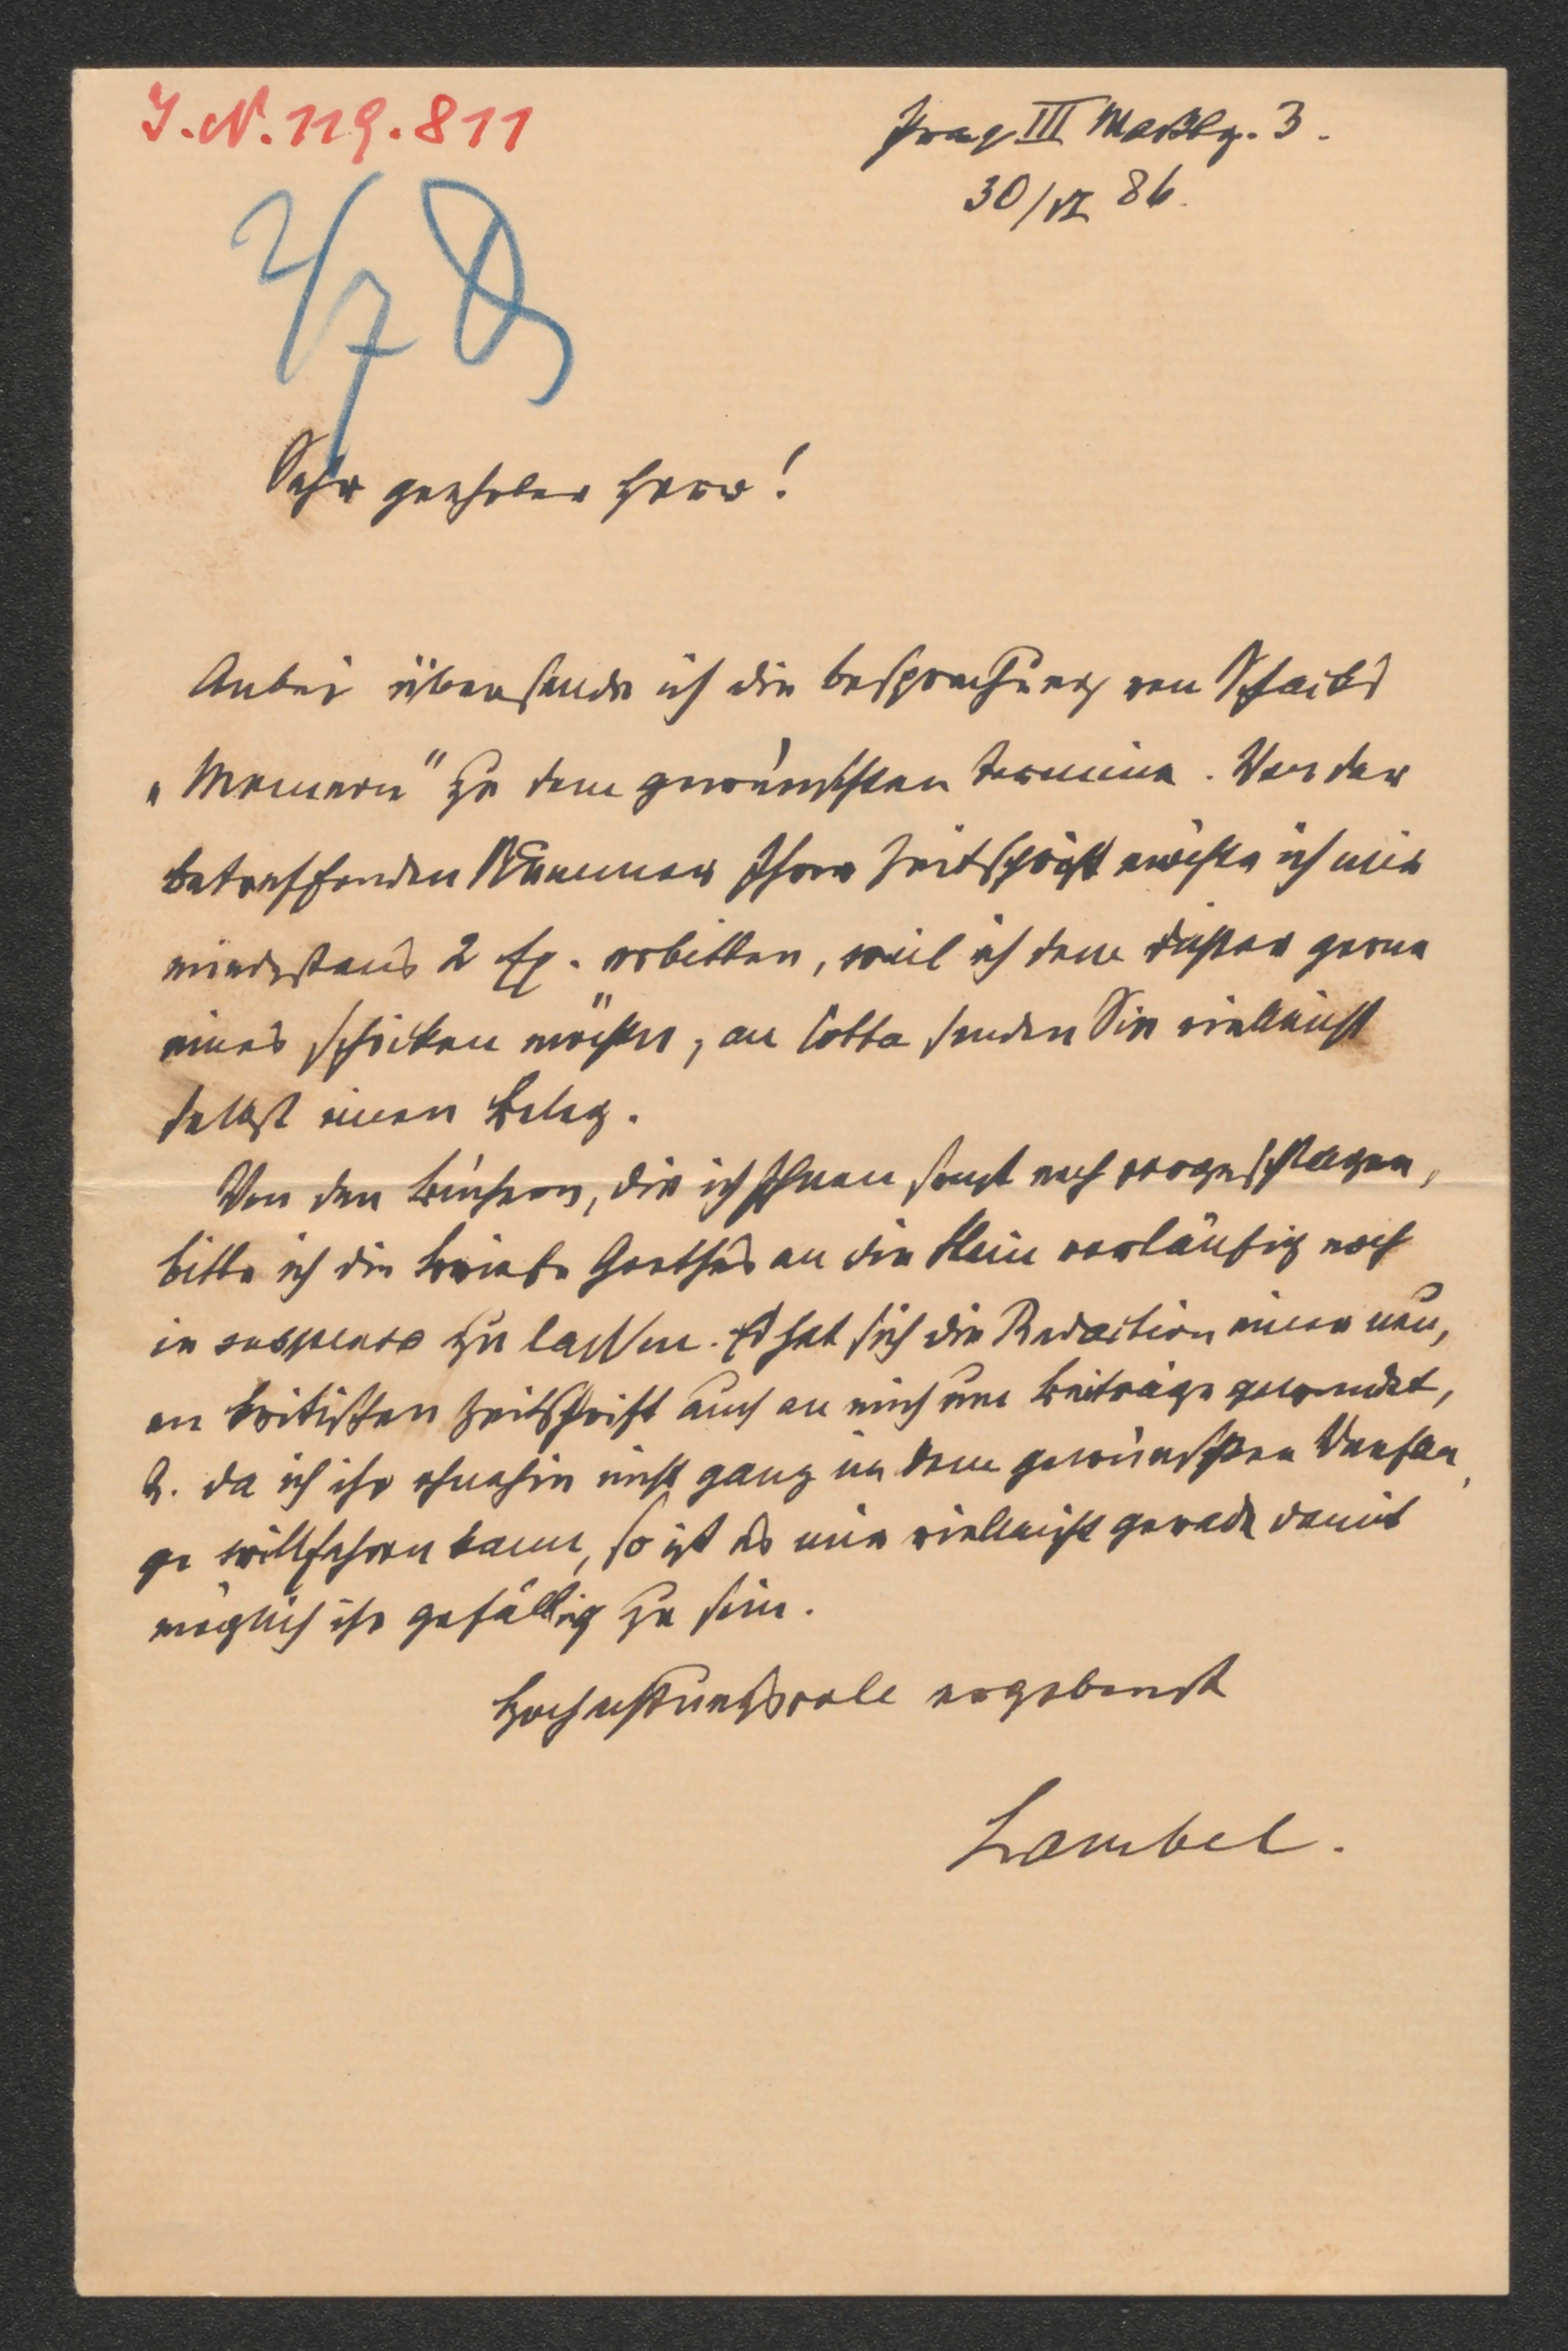 I.N. 119.811
Prag III Maltlg. 3.
30/VI 86.
2/7
Sehr geehrter Herr!
Anbei übersende ich die besprechung von Schacks
„Memnon" zu dem gewünschten termine. Von der
betreffenden Nummer Ihrer Zeitschrift möchte ich mir
mindestens 2 Ex. erbitten, weil ich dem dichter gerne
eines schicken möchte, an Cotta senden Sie vielleicht
selbst einen Beleg.
Von den büchern, die ich Ihnen sonst noch vorgeschlagen,
bitte ich die briefe Goethes an die Stein vorläufig noch
in suspenso zu lassen. Es hat sich die Redaction einer neu,
en kritischen zeitschrift auch an mich um beiträge gewendet,
u. da ich ihr ohnehin nicht ganz in dem gewünschten Umfan,
ge willfahren kann, so ist es mir vielleicht gerade damit
möglich ihr gefällig zu sein.
Hochachtungsvoll ergebenst
Lambel.